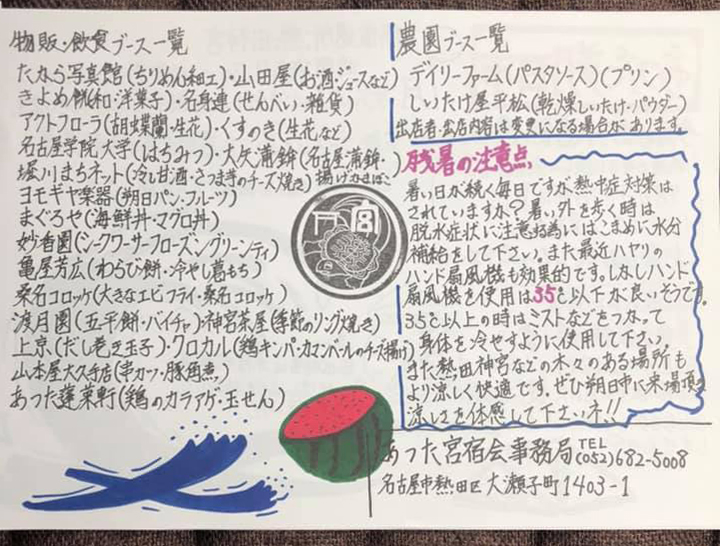 物販・飲食ブース一覧
たから写真館(ちりめん細工)・山田屋(お酒・ジュースなど)
きよめ餅(和・洋菓子)・名身連(せんべい・雑貨)
アクトフローラ(胡蝶蘭・生花)・くすのき(生花など)
名古屋学院大学(はちみつ)・大矢蒲鉾(名古屋蒲鉾・
揚げかまぼこ
堀川まちネット(冷し甘酒・さつま芋のチーズ焼き)
ヨモギヤ楽器(朔日パン・フルーツ)
まぐろや(海鮮丼・マグロ丼)
妙香園(シークワーサーフローズングリーンティ)
亀屋芳広(わらび餅・冷やし葛もち)
桑名コロッケ(大きなエビフライ・桑名コロッケ)
渡月園(五平餅・バイチャ)・神宮茶屋(季節のリング焼き)
上京(だし巻き玉子)・クロカル(鶏キンパ・カマンベールのチーズ揚げ)
山本屋大久手店(串カツ・豚角煮)
あった蓬莱軒(鶏のカラアゲ・玉せん)
宮
農園ブース一覧
デイリーファーム(パスタソース)(プリン)
しいたけ屋平松(乾燥しいたけ・パウダー)
出店者・出店内容は変更になる場合があります。
残暑の注意点
暑い日が続く毎日ですが熱中症対策は
されていますか?暑い外を歩く時は
脱水症状に注意する為にはこまめに水分
補給をして下さい。また最近ハヤりの
ハンド扇風機も効果的です。しかしハンド
扇風機を使用は35℃以下が良いそうです。
35℃以上の時はミストなどをつかって
身体を冷やすように使用して下さい。
また熱田神宮などの木々のある場所も
より涼しく快適です。ぜひ朔日市に来場頂き
涼しさを体感して下さいネ!!
あった宮宿会事務局 TEL (052)682-5008
名古屋市熱田区大瀬子町1403-1